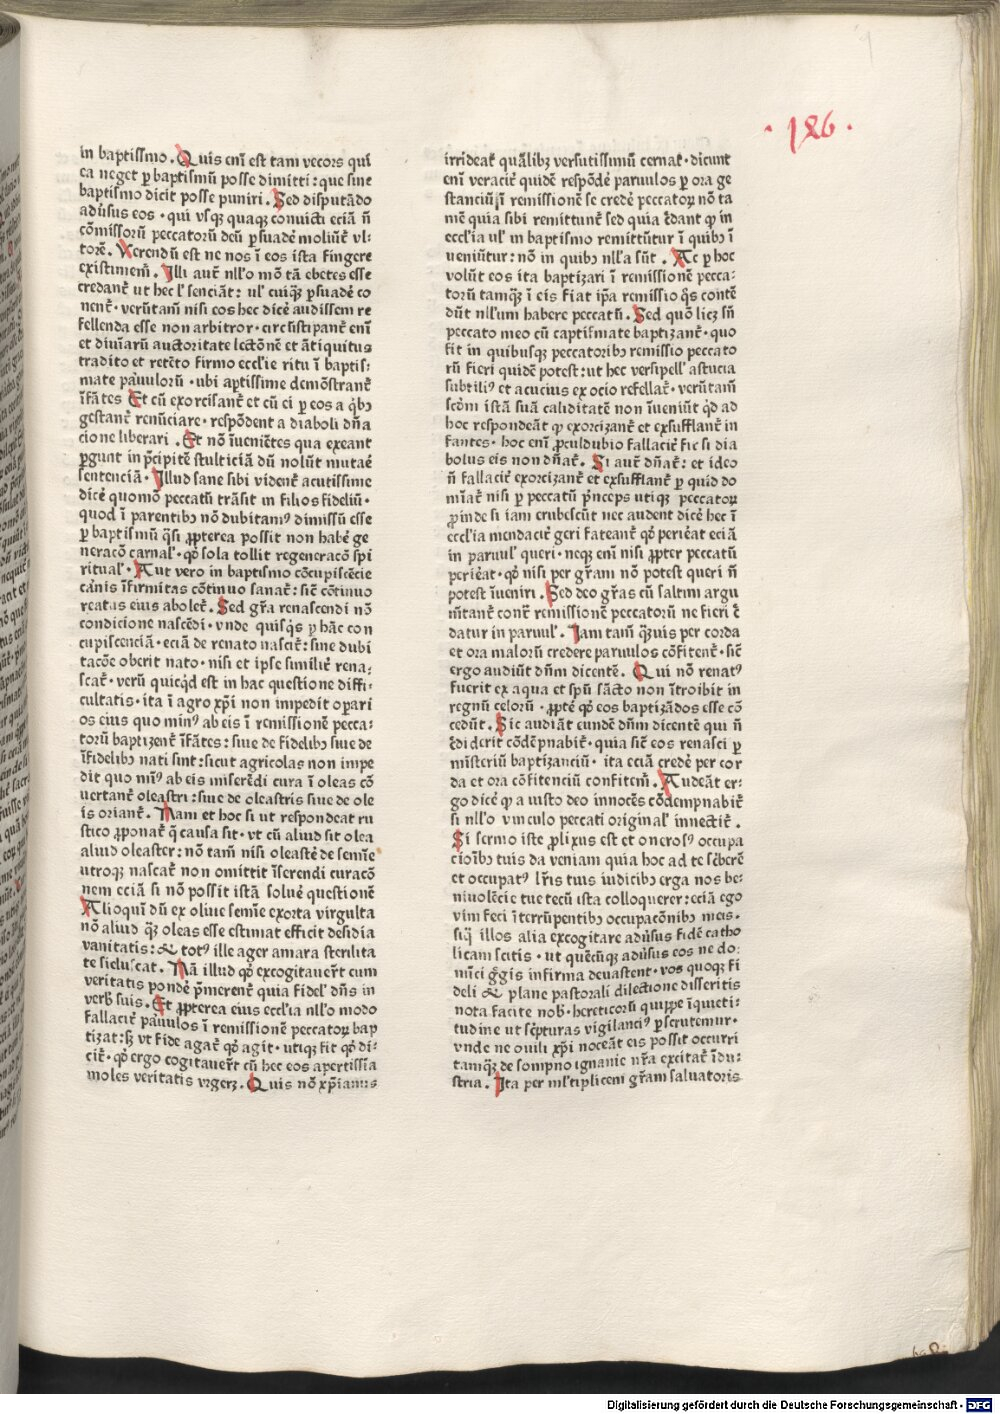 · 186 ·
in baptismo . Quis eni est tam vecors qui
ea neget ꝑ baptismū posse dimitti : que sine
baptismo dicit posse puniri . Sed disputādo
adūsus eos · qui vsqꝫ quaqꝫ conuicti eciā n̄
cōmissorū peccatorū deū ꝑsuadēt moliūt vl-
torē . Verendū est ne nos ī eos ista fingere
existimem̄ . Illi aut̄ nll'o mō tā ebetes esse
credant̄ ut hec l' senciāt : ul' cuiqꝫ ꝑsuadē co
nent̄ · verūtam̄ nisi eos hec dicē audissem re
fellenda esse non arbitror · circūstipant̄ enī
et diuinarū auctoritate lectōnē et ātiquitus
tradito et retēto firmo eccl'ie ritu ī baptis-
mate paruulorū · ubi aptissime demōstrant̄
īfātes Et cū exorcisant̄ et cū ei ꝑ eos a qͥbꝫ
gestant̄ renūciare · respōdent a diaboli dn̄a
cione liberari . Et nō īueniētes qua exeant
ꝑgunt in p̄cipitē stulticiā dū nolūt mutaē
sentenciā . Illud sane sibi vident̄ acutissime
dicē quomō peccatū trāsit in filios fideliū ·
quod ī parentibꝫ nō dubitamꝰ dimissū esse
ꝑ baptismū q̄si ꝓpterea possit non habē ge
neracō carnal' · qd' sola tollit regeneracō spi
ritual' · Aut vero in baptismo cōcupiscēcie
carnis īfirmitas cōtinuo sanat̄ : sic̄ cōtinuo
reatus eius abolet̄ . Sed gr̄a renascendi nō
condicione nascēdi · vnde quisqͥs ꝑ hāc con
cupiscenciā · eciā de renato nascit̄ : sine dubi
tacōe oberit nato · nisi et ipse similit̄ rena-
scat̄ · verū quicqͥd est in hac questione diffi-
cultatis · ita ī agro xp̄i non impedit oꝑari
os eius quo minꝰ ab eis ī remissionē pecca-
torū baptizent̄ īfātes : siue de fidelibꝫ siue de
īfidelibꝫ nati sint : sicut agricolas non impe
dit quo mīꝰ ab eis miserēdi cura ī oleas cō
uertant̄ oleastri : siue de oleastris siue de ole
is oriant̄ . Nam et hoc si ut respondeat ru
stico ꝓponat̄ q̄ causa sit · vt cū aliud sit olea
aliud oleaster : nō tam̄ nisi oleastē de semīe
utroqꝫ nascat̄ non omittit īserendi curacō
nem eciā si nō possit istā soluē questionē
Alioqui dū ex oliue semīe exorta virgulta
nō aliud qꝫ oleas esse estimat efficit desidia
vanitatis : & totꝰ ille ager amara sterilita
te sicluscat . Nā illud qd' excogitauer̄t cum
veritatis pondē p̄merent̄ quia fidel' dn̄s in
verb' suis . Et ꝓpterea eius eccl'ia nll'o modo
fallacit̄ paruulos ī remissionē peccatoꝝ bap
tizat : sꝫ vt fide agat̄ qd' agit · utiqꝫ fit qd' di-
cit̄ · qd' ergo cogitauer̄t cū hec eos apertissīa
moles veritatis vrgerꝫ . Quis nō xp̄ianus
irrideat̄ quālibꝫ versutissimū cernat̄ · dicunt
enī veracit̄ quidē respōdē paruulos ꝑ ora ge
stanciū ī remissionē se credē peccatoꝝ nō ta
mē quia sibi remittunt̄ sed quia c̄dant ꝙ in
eccl'ia ul' in baptismo remittūtur ī quibꝫ ī
ueniūtur : nō in quibꝫ nll'a sūt . Ac ꝑ hoc
volūt eos ita baptizari ī remissionē pecca-
torū tamqꝫ ī eis fiat ip̄a remissio qͥs contē
dūt nll'um habere peccatū . Sed quō licꝫ sn̄
peccato meo cū captismate baptizant̄ · quo
fit in quibusqꝫ peccatoribꝫ remissio peccato
rū fieri quidē potest : ut hec versipell' astucia
subtiliꝰ et acucius ex ocio refellat̄ · verūtam̄
scdm̄ istā suā caliditatē non īueniūt qͥd ad
hoc respondeāt ꝙ exorcizant̄ et exsufflant̄ in
fantes · hoc enī ꝓculdubio fallacit̄ fit si dia
bolus eis non dn̄at̄ . Si aut̄ dn̄at̄ : et ideo
n̄ fallacit̄ exorcizant̄ et exsufflant̄ ꝑ quid do
mīat̄ nisi ꝑ peccatū p̄nceps utiqꝫ peccatoꝝ
ꝓinde si iam erubescūt nec audent dicē hec ī
eccl'ia mendacit̄ geri fateant̄ qd' perierat eciā
in paruul' queri · neqꝫ enī nisi ꝓpter peccatū
perierat · qd' nisi per gr̄am nō potest queri n̄
potest īueniri . Sed deo gr̄as cū saltim argu
mētant̄ cont̄ remissionē peccatorū ne fieri c̄
datur in paruul' . Iam tam̄ qꝫuis per corda
et ora malorū credere paruulos cōfitent̄ · sic̄
ergo audiūt dn̄m dicentē . Qui nō renatꝰ
fuerit ex aqua et spū sācto non ītroibit in
regnū celorū · ꝓptē qd' eos baptizādos esse cō
cedūt . Sic audiāt eundē dn̄m dicentē qui n̄
c̄diderit cōdēpnabit̄ · quia sic̄ eos renasci ꝑ
misteriū baptizanciū · ita eciā credē per cor
da et ora cōfitenciū confitem̄ . Audeāt er-
go dicē ꝙ a iusto deo innocēs cōdempnabit̄
si nll'o vinculo peccati original' innectit̄ .
Si sermo iste ꝓlixus est et onerosꝰ occupa
cioībꝫ tuis da veniam quia hoc ad te scriberē
et occupatꝰ lr̄is tuis iudicibꝫ erga nos be-
niuolēcie tue tecū ista colloquerer : eciā ego
vim feci īterrūpentibꝫ occupacōnibꝫ meis ·
siq̄ illos alia excogitare adūsus fidē catho
licam scitis · ut quecūqꝫ adūsus eos ne do-
mīci gregis infirma deuastent · vos quoqꝫ fi
deli & plane pastorali dilectione disseritis
nota facite nob' · hereticorū quippe īquieti-
tudine ut sc̄pturas vigilanciꝰ ꝑscrutemur ·
vnde ne ouili xp̄i noceāt eis possit occurri
tamqꝫ de sompno ignauie nr̄a excitat̄ īdu-
stria . Ita per ml'tiplicem gr̄am saluatoris
Digitalisierung gefördert durch die Deutsche Forschungsgemeinschaft - DFG